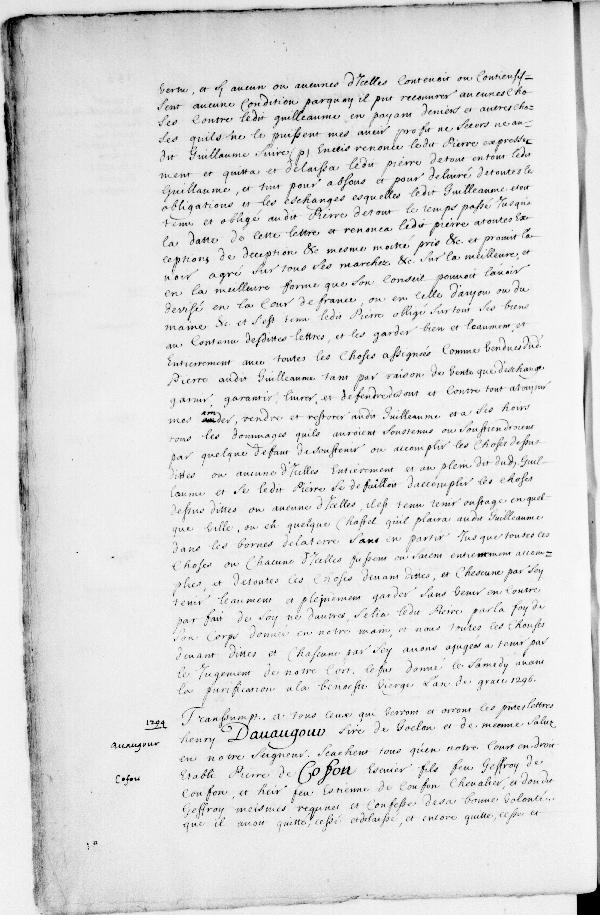 vertu, et sy aucun ou aucunes d'Icelles Contenoit ou Contienss=
sent aucune Condition parquoy il put recouvrer aucunes Cho
ses Contre ledit guilleaume en payant deniers et autres Cho=
ses quils ne le puissent mes avoir profit ne secors ne au=
dit Guillaume Nuire (p) Enceis renonce ledit Pierre expresse
ment et quitta et delaissa ledit pierre de tout en tout ledit
Guillaume, et tint pour absous et pour delivré de toutes les
obligations et les eschanges esquelles ledit Guilleaume etoit
tenu et obligé audit Pierre de tout le temps passé Jusqua
la datte de cette lettre et renonca ledit pierre a toutes Ex
ceptions de deception &c mesme moitié pris &c. et promit la
noir agré sur tous ses marchez &c. Sur la meilleure, et
en la meilleure forme que son Conseil pouvoit lavoir
devisé en la Cour de france, ou en Celle d'anjou ou du
maine &c et s'est tenu ledit Pierre obligé sur tout ses biens
au Contenu desdittes lettres, et les garder bien et leaument, et
Entierement avec toutes les Choses assignées Comme vendues dud.
Pierre audit Guilleaume tant par raison de vente que deschange
garir, garantir, livrer, et defendre de tout et Contre tout atoujour
mes amender, rendre et restorer audit Guilleaume et a ses hoirs
tous les dommages quils auroient Soustenus ou Soustiendroient
par quelque deffaut de soustenir ou accomplir les Choses dessus
dittes ou aucune d'Icelles Entierement et au plein dit dudt. Guil=
leaume et se ledit Pierre se defailloit daccomplir les choses
dessus dittes ou aucune d'Icelles, il est tenu tenir oustage en quel=
que ville, ou en quelque Chastel quil plaira audit Guilleaume
dans les bornes de la terre Sans en partir Jusque toutes les
Choses ou Chacune d'Icelles fussent ou soient entierement accom=
plies, et de toutes les Choses devant dittes, et Chescune par soy
tenir leaument et pleinement garder Sans venir en Contre
par fait de Soy ne d'autres, Se lia ledit Pierre par la foy de
Son Corps donnée en notre main, et nous toutes les Chouses
devant dittes et Chascune par Sey avons ajugées a tenir par
le Jugement de notre Cort. Ce fut donné le Samedy avant
la purification a la benoeste Vierge L'an de grace 1296.
1294
Transsumpt. a tous ceux qui verront et orront les pntes lettres
Auaugour
henry Dauaugour Sire de Goelou et de meenne Saluz
en notre Seigneur. Scachent tous qu'en notre Court en droit
Cofon
Etabli Pierre de Coffon Escuier fils feu Geffroy de
Couffon, et heir feu Estienne de Couffon Chevalier, et dondit
Geffroy meismes requnet et Confesse desa bonne volonté..
que il avoit quitté, cessé et delaissé, et encore quitte, cesse et